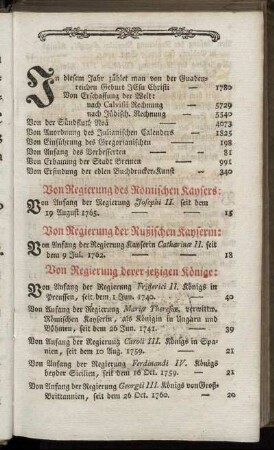 In diesem Jahr zählet man von der Gnaden-
reichen Geburt JEsu Christi — 1780
Von Erschaffung der Welt:
nach Calvisii Rechnung — 5729
nach Jüdisch. Rechnung — 5540
Von der Sündfluth Noä — 4073
Von Anordnung des Julianischen Calenders — 1825
Von Einführung des Gregorianischen — 198
Von Anfang des Verbesserten — 81
Von Erbauung der Stadt Bremen — 991
Von Erfindung der edlen Buchdrucker-Kunst — 340
Von Regierung des Römischen Kaysers:
Von Anfang der Regierung Josephi II. seit dem
19 August 1765. — 15
Von Regierung der Rußischen Kayserin:
Von Anfang der Regierung Kayserin Catharinæ II. seit
dem 9 Jul. 1762. — 18
Von Regierung derer jetzigen Könige:
Von Anfang der Regierung Friderici II. Königs in
Preussen, seit dem 1 Jun. 1740. — 40
Von Anfang der Regierung Mariæ Theresiæ, verwittw.
Römischen Kayserin, als Königin in Ungarn und
Böhmen, seit dem 26 Jun. 1741. — 39
Von Anfang der Regierung Caroli III. Königs in Spa-
nien, seit dem 10 Aug. 1759. — 21
Von Anfang der Regierung Ferdinandi IV. Königs
beyder Sicilien, seit dem 16 Oct. 1759. — 21
Von Anfang der Regierung Georgii III. Königs von Groß-
Brittannien, seit dem 26 Oct. 1760. — 20